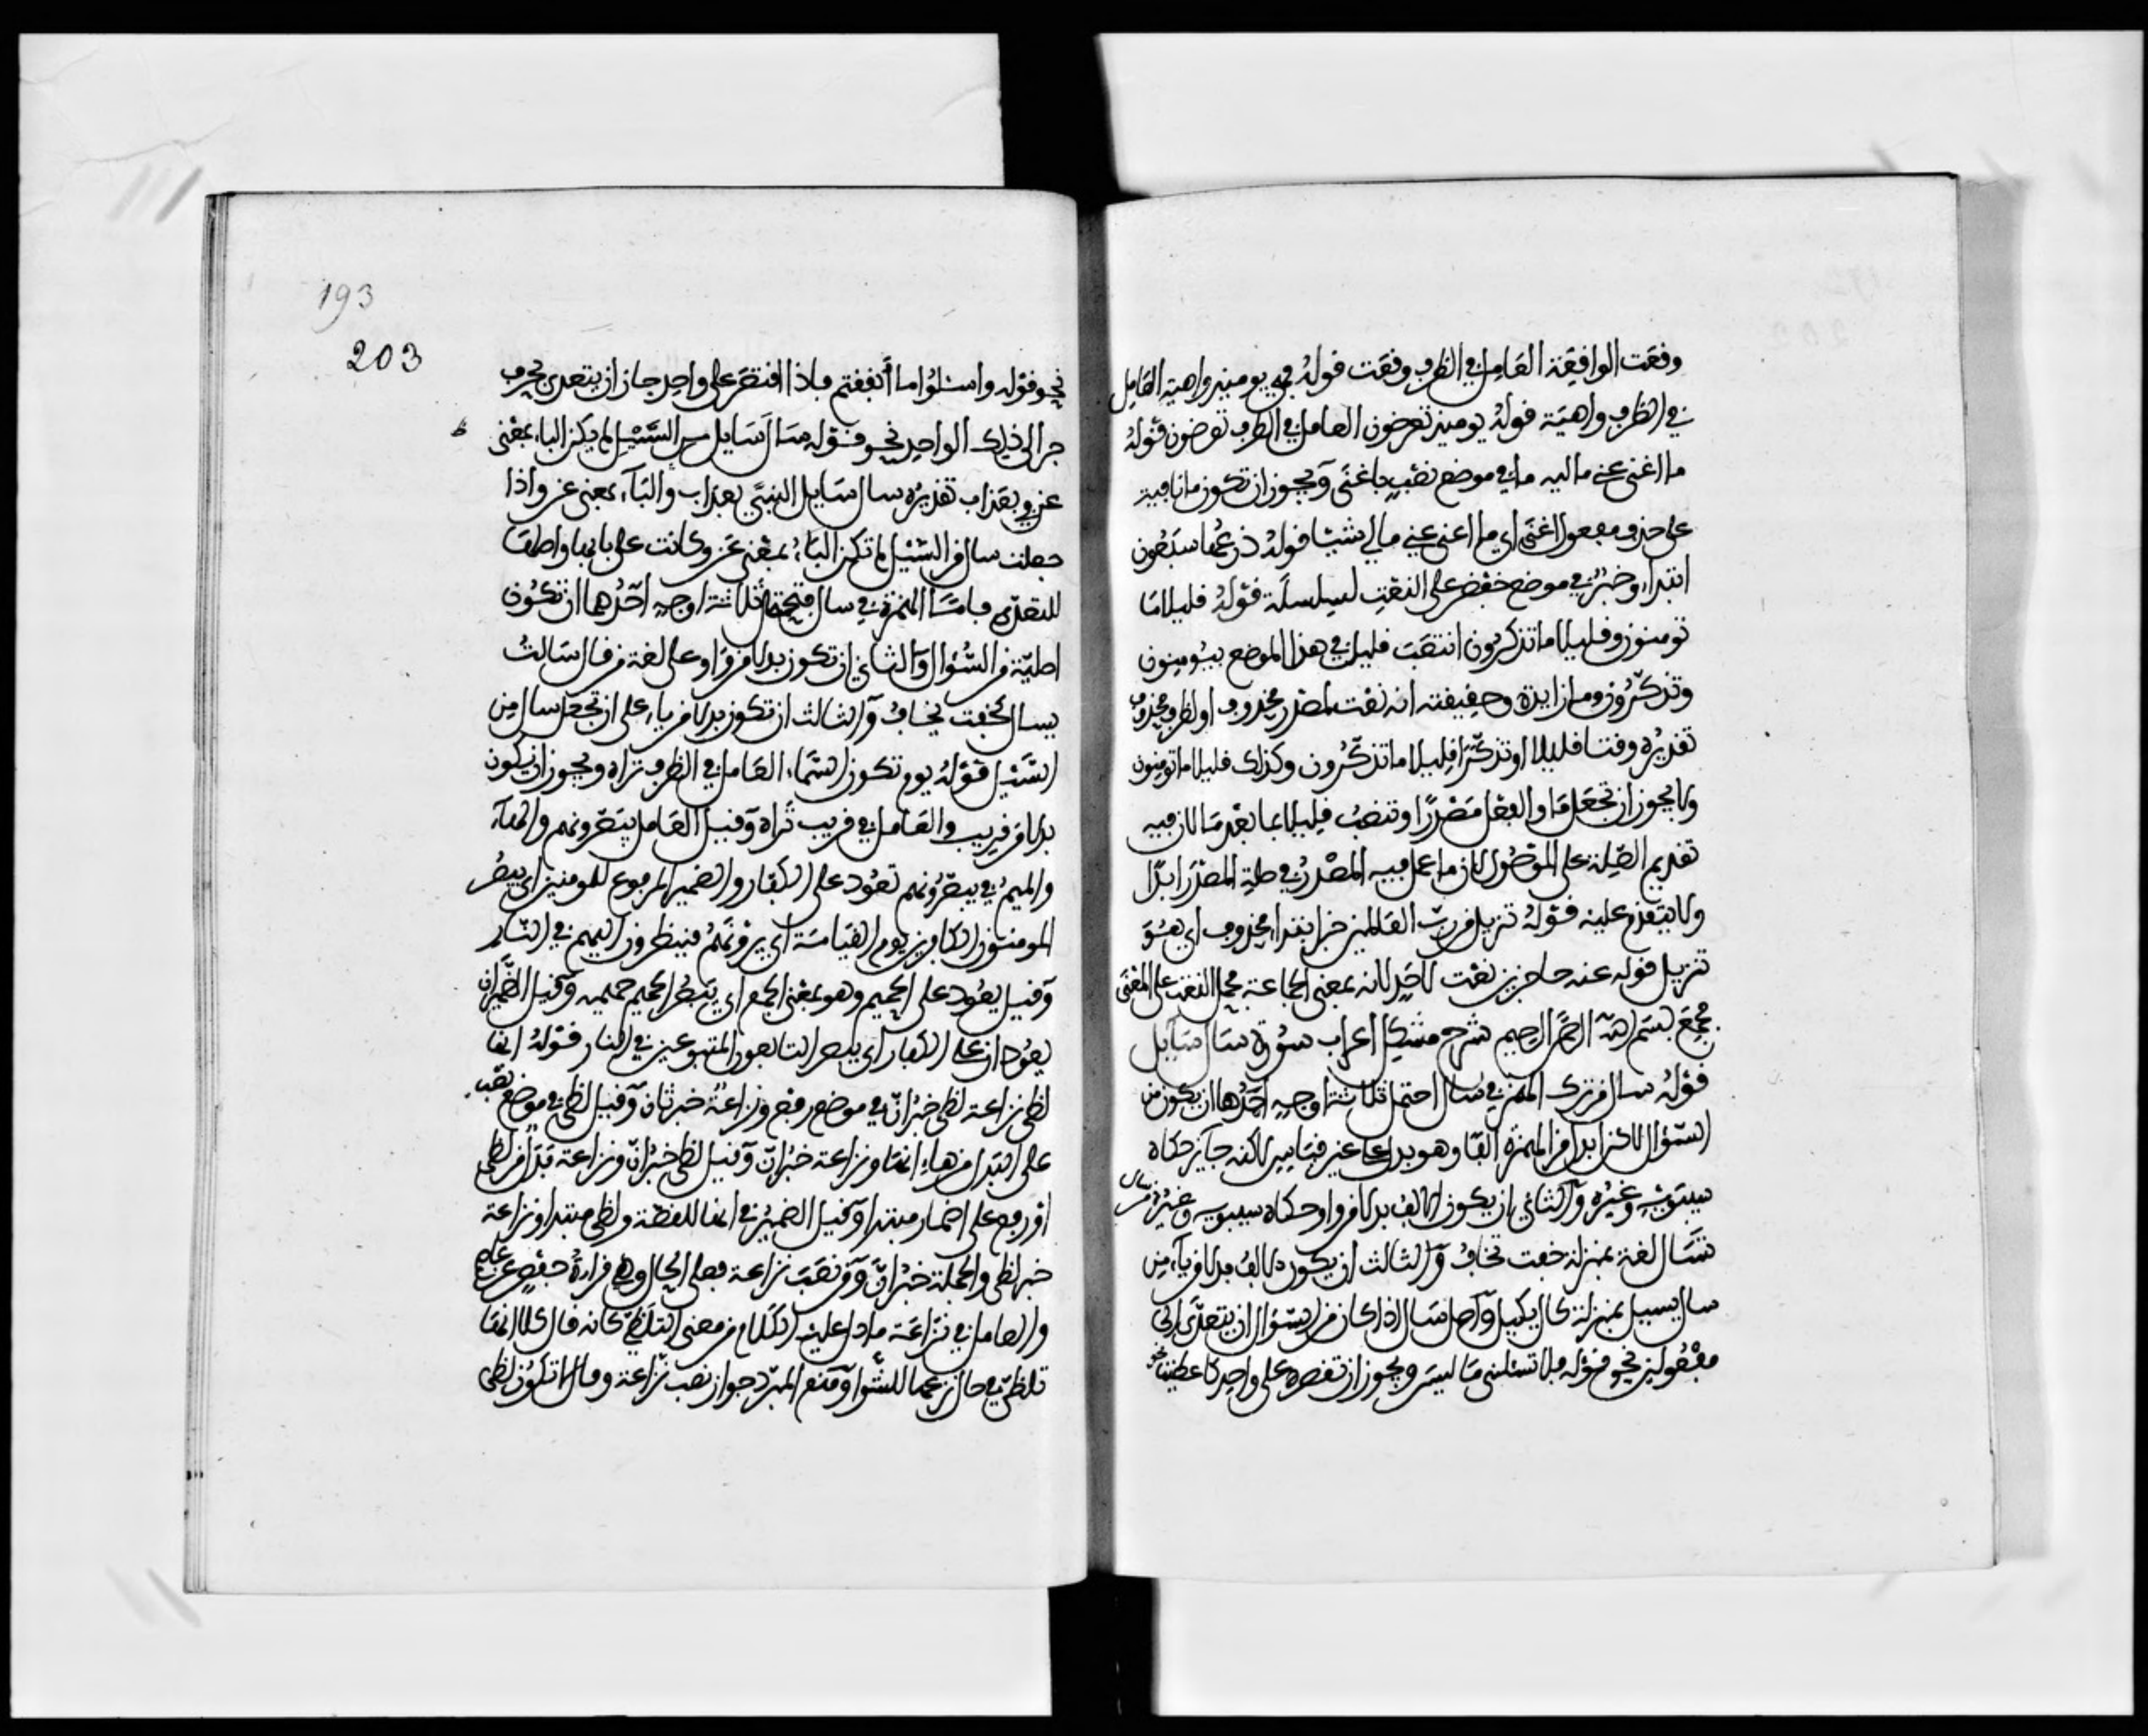 وقعت الواقعة العامل في الظرف وقعت قوله فهي يومئذ واهية العامل
في الظرف واهية قوله يومئذ تعرضون العامل في الظرف تعرضون قوله
ما اغنى عني ماليه ما في موضع نصب باغنى ويجوز ان تكون ما نافية
على حذف مفعول اغنى اي ما اغنى عني مالي شيئا قوله ذرعها سبعون
ابتداء وخبر في موضع خفض على النعت لسلسلة قوله قليلا ما
تومنون وقليلا ما تذكرون انتصب قليلا في هذا الموضع بيومنون
وتذكرون وما زايدة وحقيقته انه نعت لمصدر محذوف او لظرف محذوف
تقديره وقتا قليلا او تذكرا قليلا ما تذكرون وكذلك قليلا ما تومنون
ولا يجوز ان تجعل ما والفعل مصدرا وتنصب قليلا بما بعد ما لان فيه
تقديم الصلة على الموصول لان ما عمل فيه المصدر في صلة المصدر ابدا
ولا يتقدم عليه قوله تنزيل من رب العالمين خبر ابتداء محذوف اي هو
تنزيل قوله عنه حاجزين نعت لاحد لانه بمعنى الجماعة فحمل النعت على المعنى
فجمع بسم الله الرحمن الرحيم شرح مشكل اعراب سورة سال سايل
قوله سال من ترك الهمز في سال احتمل ثلاثة اوجه احدها ان يكون من
السؤال لاكن ابدل من الهمزة الفا وهو بدل على غير قياس لاكنه جايز حكاه
سيبويه وغيره والثاني ان يكون الالف بدلا من واو حكاه سيبويه وغيره من سال
تسال لغة بمنزلة خفت تخاف والثالث ان يكون الالف بدلا من ياء من
سال يسيل بمنزلة كال يكيل واصل سال اذا كان من السؤال ان يتعدى الى
مفعولين نحو قوله فلا تسئلني ما ليس ويجوز ان تقصره على واحد كاعطيت نحو
193
203
نحو قوله واسئلوا ما انفقتم فاذا اقتصر على واحد جاز ان يتعدى بحرف
جر الى ذلك الواحد نحو قوله سال سايل من السيل لم يكن الباء بمعنى
عن بعذاب تقديره سال سايل النبي بعذاب والباء بمعنى عن واذا
جعلت سال من السيل لم تكن الباء بمعنى عن وكانت على بابها واصلها
للتعدي فاما الهمزة في سايل فتحتمل ثلاثة اوجه احدها ان تكون
اصلية من السؤال والثاني ان تكون بدلا من واو على لغة من قال سالت
يسال كخفت يخاف والثالث ان تكون بدلا من ياء على ان تجعل سال من
السيل قوله يوم تكون السماء العامل في الظرف نراه ويجوز ان يكون
بدلا من قريب والعامل في قريب نراه وقيل العامل يبصرونهم والهاء
والميم في يبصرونهم تعود على الكفار والضمير المرفوع للمومنين اي يبصر
المومنون الكافرين يوم القيامة اي يرونهم فينظرون اليهم في النار
وقيل يعود على الحميم وهو بمعنى الجمع اي يبصر الحميم حميمه وقيل الضميران
يعودان على الكفار اي يبصر التابعون المتبوعين في النار قوله انها
لظى نزاعة لظى خبر ان في موضع رفع ونزاعة خبر ثان وقيل لظى في موضع نصب
على البدل من هاء انها ونزاعة خبر ان وقيل لظى خبر ان ونزاعة بدل من لظى
او رفع على اضمار مبتدا وقيل الضمير في انها للقصة ولظى مبتدا ونزاعة
خبر لظى والجملة خبر ان ومن نصب نزاعة فعلى الحال وهي قراءة حفص عن عاصم
والعامل في نزاعة ما دل عليه الكلام من معنى التلظي كانه قال كلا انها
تلظى في حال نزعها للشوا ومنع المبرد جواز نصب نزاعة وقال لا تكون لظى